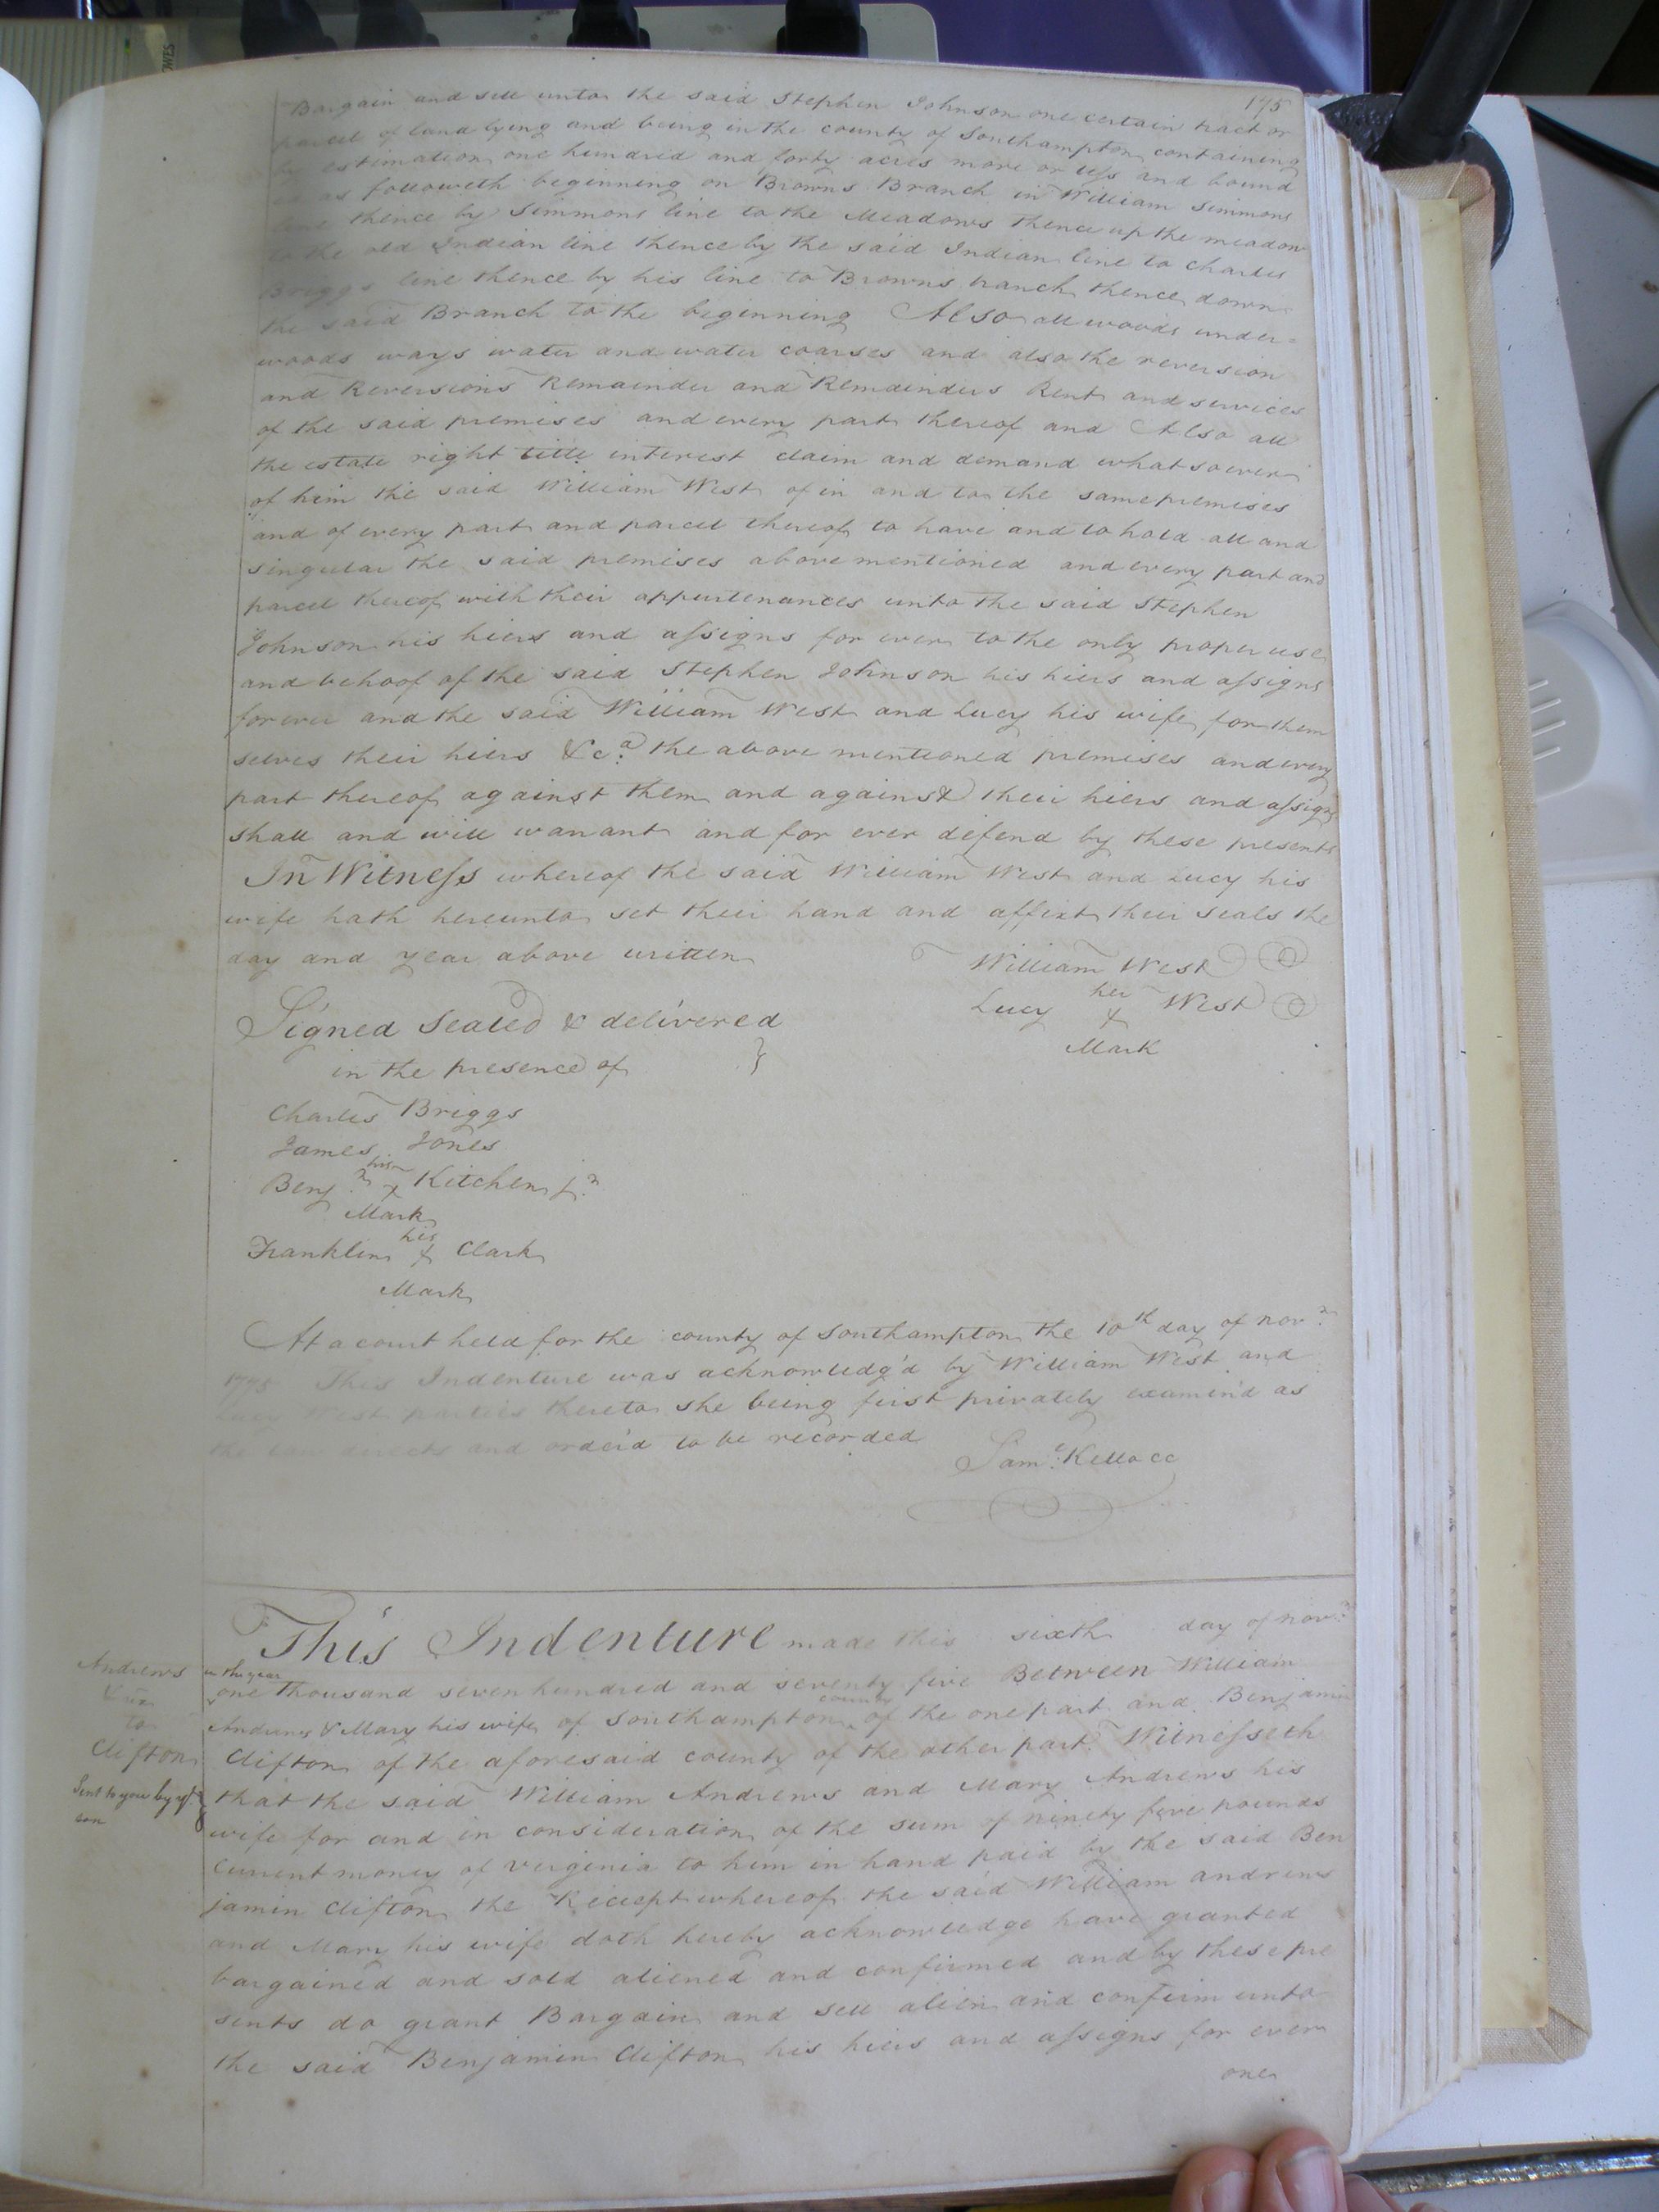 175
Bargain and sell unto the said Stephen Johnson one certain tract or
parcel of land lying and being in the county of Southampton containing
by estimation one hundred and forty acres more or less and bound
as followeth beginning on Browns Branch in William Simmons
line thence by Simmons line to the Meadows thence up the meadow
to the old Indian line thence by the said Indian line to Charles
Briggs line thence by his line to Browns branch thence down
the said Branch to the beginning Also all woods under=
woods ways water and water coarses and also the reversion
and Reversions Remainder and Remainders Rents and services
of the said premises and every part thereof and Also all
the estate right title interest claim and demand whatsoever
of him the said William West of in and to the same premises
and of every part and parcel thereof to have and to hold all and
singular the said premises above mentioned and every part and
parcel thereof with their appurtenances unto the said Stephen
Johnson his hiers and assigns for ever to the only proper use
and behoof of the said Stephen Johnson his hiers and assigns
forever and the said William West and Lucy his wife for them
selves their hiers &c.a the above mentioned premises and every
part thereof against them and against their hiers and assigns
shall and will warrant and for ever defend by these presents
In Witness whereof the said William West and Lucy his
wife hath hereunto set their hand and affixt their seals the
day and year above written
William West
Lucy her x West
Mark
Signed Sealed & delivered
in the presence of }
Charles Briggs
James Jones
Benj.n his x Kitchen j.r
Mark
Franklin his x Clark
Mark
At a court held for the county of Southampton the 10th day of nov.r
1775 This Indenture was acknowledg'd by William West and
Lucy West parties thereto she being first privately examin'd as
the law directs and order'd to be recorded
Sam.l Kello cc
This Indenture made this sixth day of nov.r
in the year
one thousand seven hundred and seventy five Between William
Andrews & Mary his wife of Southampton county of the one part and Benjamin
Clifton of the aforesaid county of the other part Witnesseth
that the said William Andrews and Mary Andrews his
wife for and in consideration of the sum of ninety five pounds
current money of virginia to him in hand paid by the said Ben
jamin Clifton the Receept whereof the said William andrews
and Mary his wife doth hereby acknowledge have granted
bargained and sold aliened and confirmed and by these pre
sents do grant Bargain and sell alien and confirm unto
the said Benjamin Clifton his hiers and assigns for ever
one
Andrews
& ux
to
Clifton
Sent to you by yr.
son